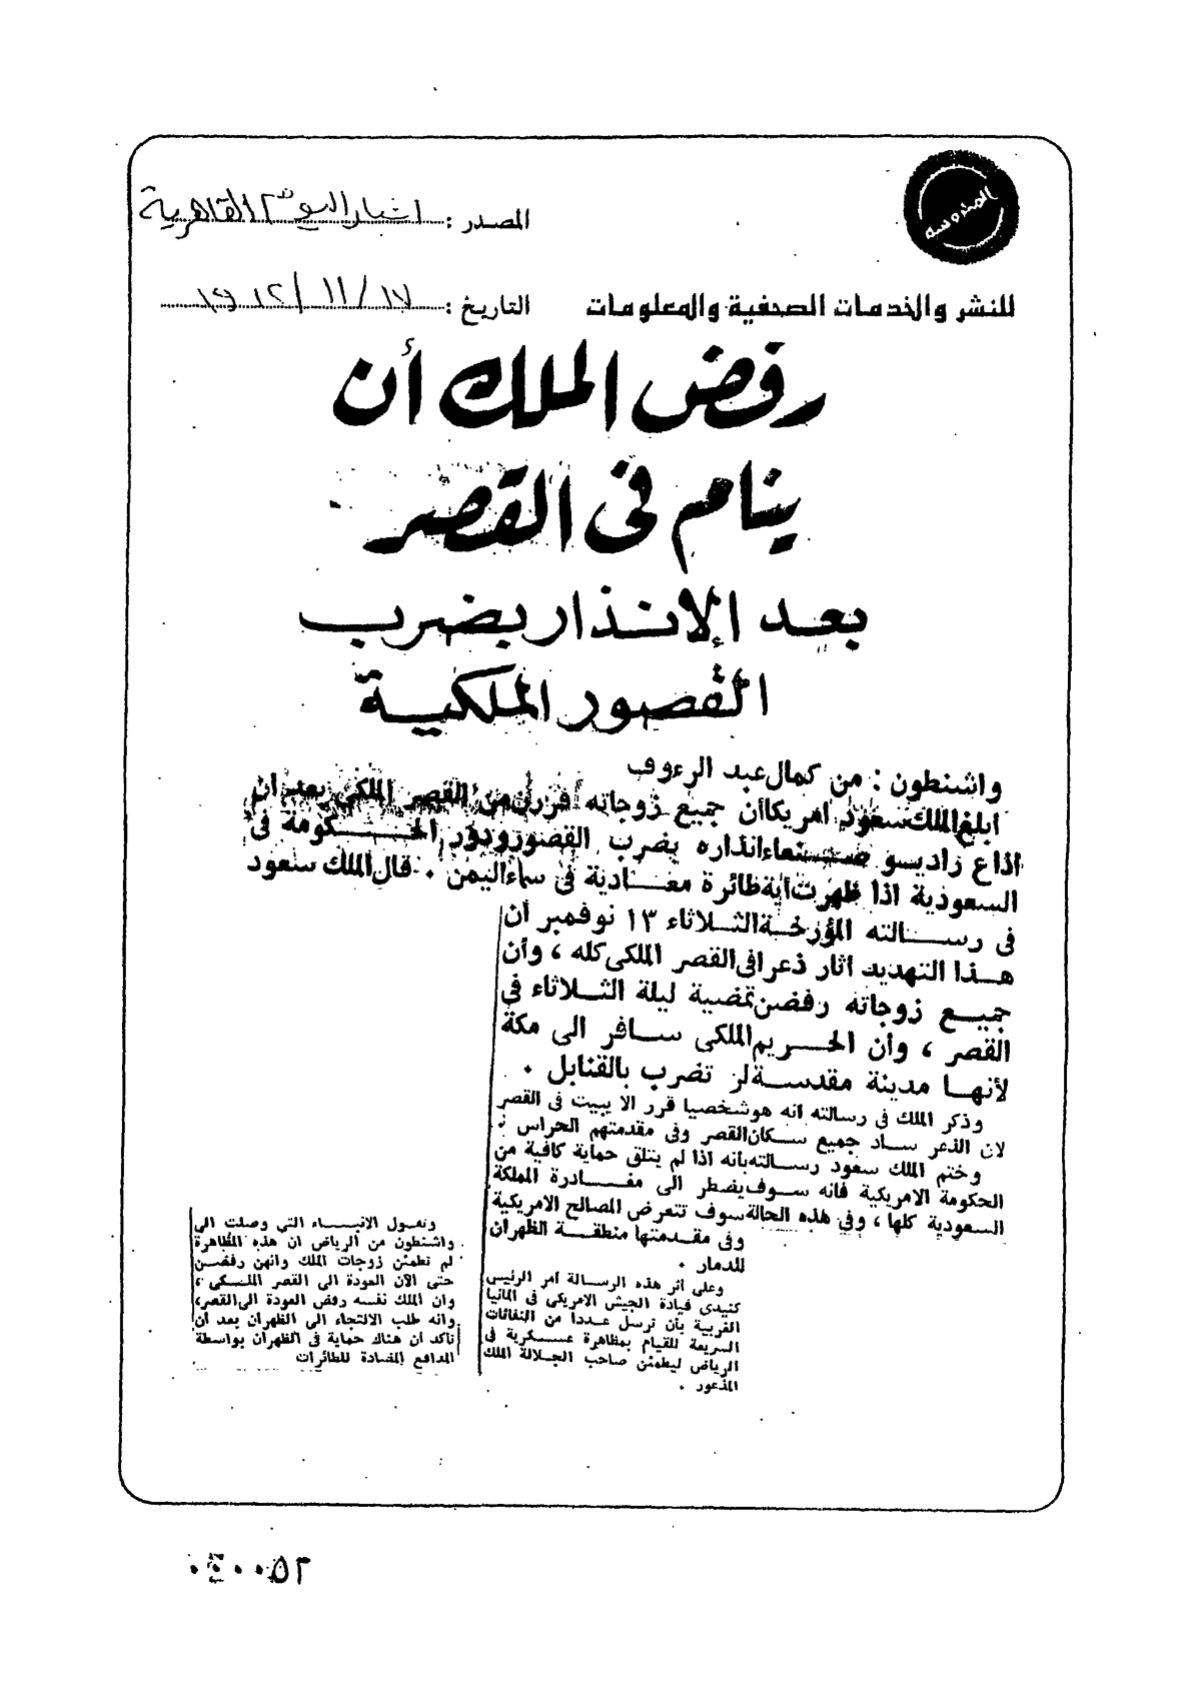 المحروسه
المصدر : اخبار اليوم القاهرية
للنشر والخدمات الصحفية والمعلومات
التاريخ : ١٧ / ١١ /
رفض الملك أن
ينام فى القصر
بعد الإنذار بضرب
القصور الملكية
واشنطون : من كمال عبد الرءوف
ابلغ الملك سعود امريكا أن جميع زوجاته فررن من القصر الملكى بعد ان
اذاع راديو صنعاء انذاره بضرب القصور ودور الحكومة فى
السعودية اذا ظهرت أية طائرة معادية فى سماء اليمن . قال الملك سعود
فى رسالته المؤرخة الثلاثاء ١٣ نوفمبر أن
هذا التهديد أثار ذعرا فى القصر الملكى كله ، وأن
جميع زوجاته رفضن تمضية ليلة الثلاثاء في
القصر ، وأن الحريم الملكى سافر الى مكة
لأنها مدينة مقدسة لن تضرب بالقنابل .
وذكر الملك فى رسالته انه هو شخصيا قرر الا يبيت فى القصر
لان الذعر ساد جميع سكان القصر وفى مقدمتهم الحراس .
وختم الملك سعود رسالته بانه اذا لم يتلق حماية كافية من
الحكومة الامريكية فانه سوف يضطر الى مغادرة المملكة
السعودية كلها ، وفي هذه الحالة سوف تتعرض المصالح الامريكية
وفى مقدمتها منطقة الظهران
للدمار .
وعلى اثر هذه الرسالة أمر الرئيس
كنيدى قيادة الجيش الامريكى فى المانيا
الغربية بأن ترسل عددا من النفاثات
السريعة للقيام بمظاهرة عسكرية فى
الرياض ليطمئن صاحب الجلالة الملك
المذعور .
وتقول الانباء التي وصلت الى
واشنطون من الرياض ان هذه المظاهرة
لم تطمئن زوجات الملك وانهن رفضن
حتى الآن العودة الى القصر الملكى ،
وان الملك نفسه رفض العودة الى القصر،
وانه طلب الالتجاء الى الظهران بعد أن
تأكد أن هناك حماية فى الظهران بواسطة
المدافع المضادة للطائرات
٠٤٠٠٥٣